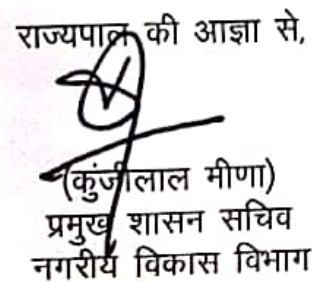 राज्यपाल की आज्ञा से,
(कुंजीलाल मीणा)
प्रमुख शासन सचिव
नगरीय विकास विभाग